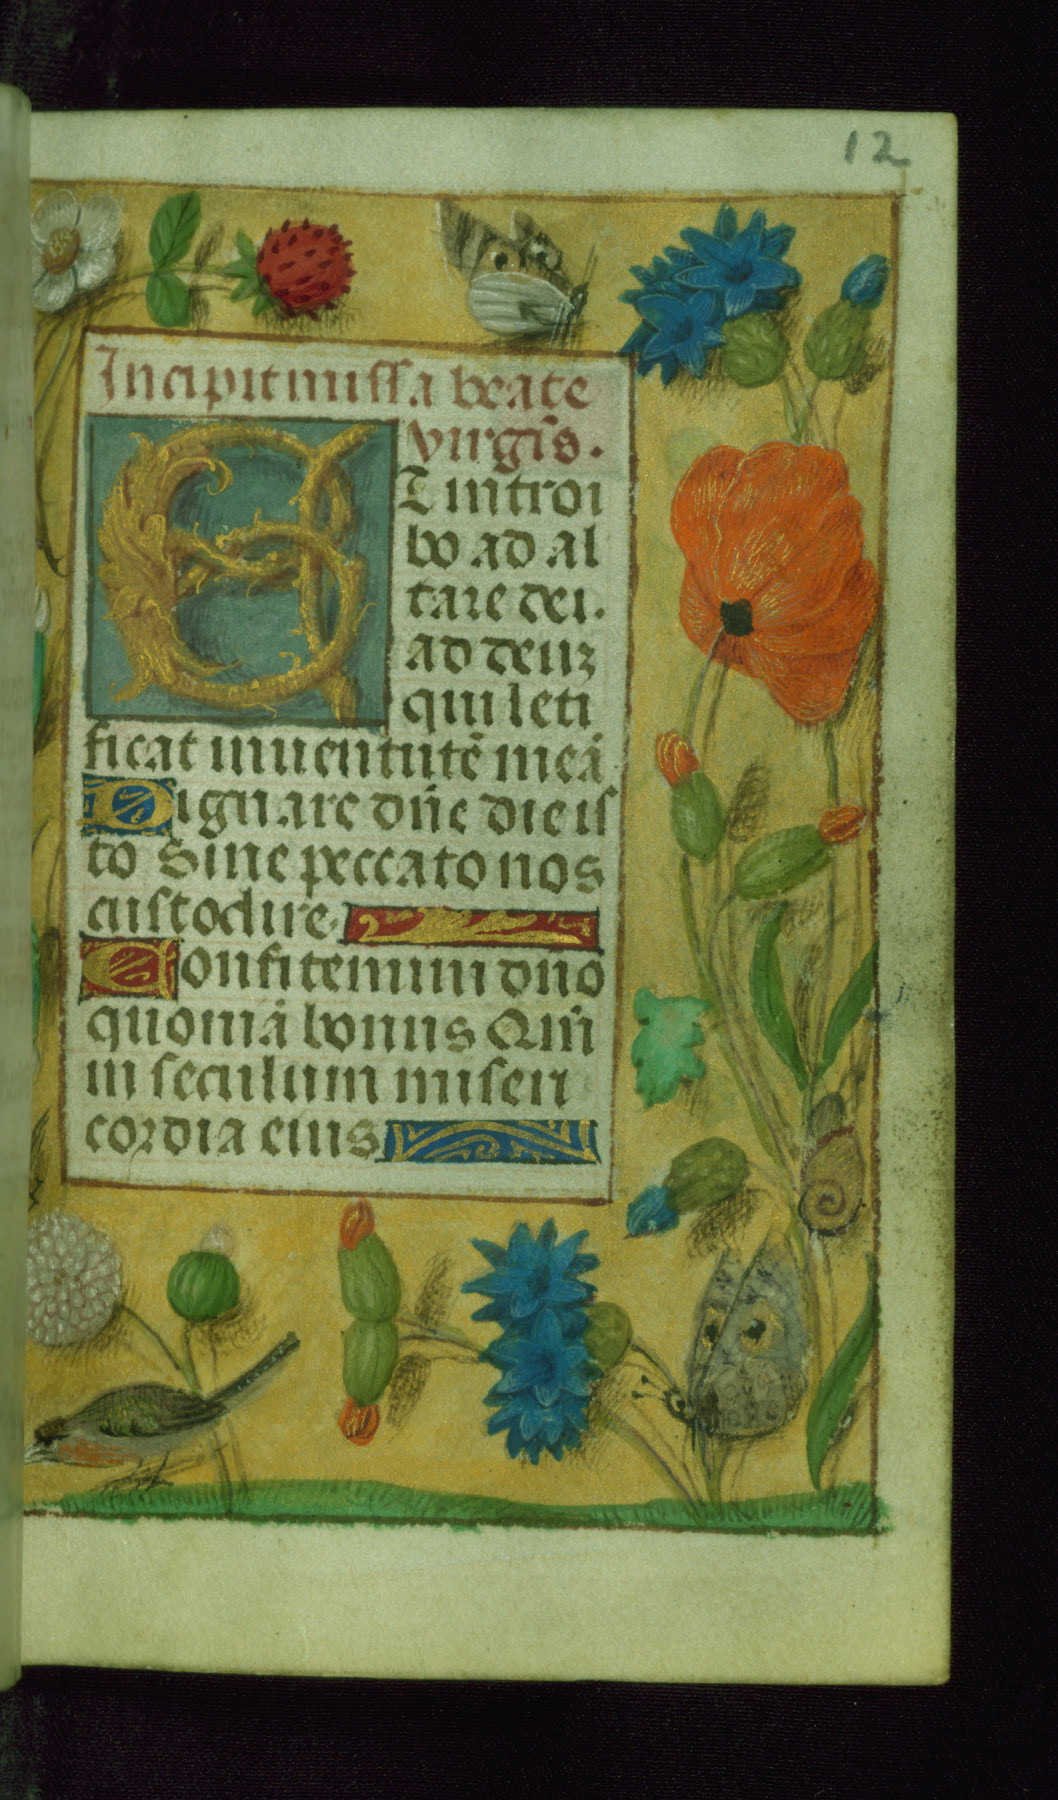 12
Incipit missa beate
virgīs.
ET introi
bo ad al
tare dei.
ad deuz
qui leti
ficat iuuentutē meā
Dignare dn̄e die is
to Sine peccato nos
custodire.
Confitemini dn̄o
quoniā bonus Qm̄
in seculum miseri
cordia eius